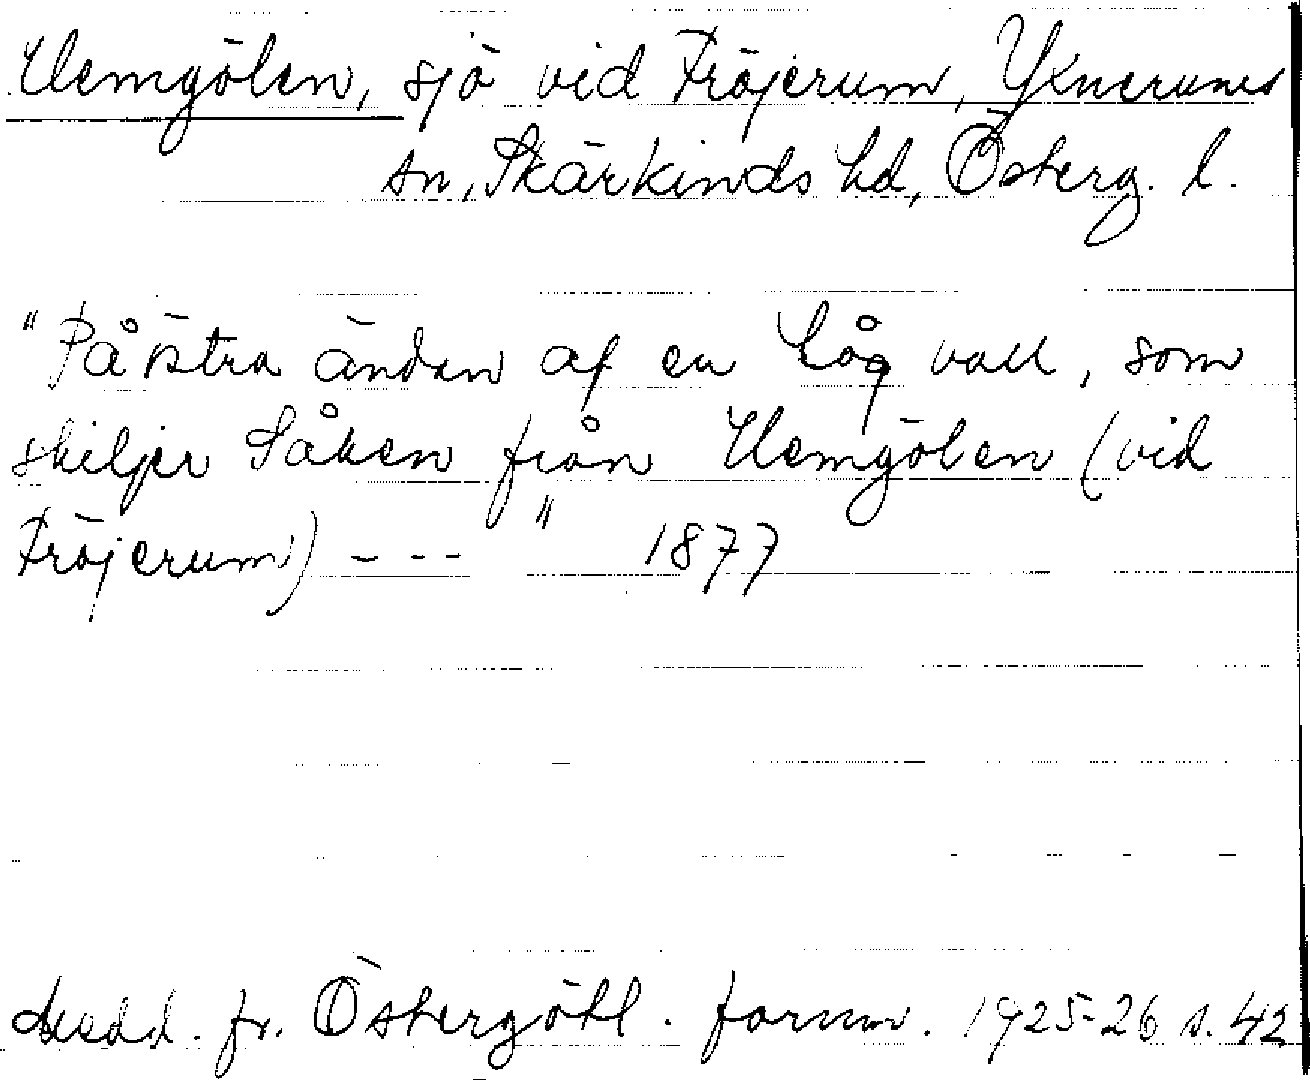 Hemgölen, sjö vid Fröjerum, Yxnerums
sn, Skärkinds hd, Österg. l.
"På östra ändan af en låg vall, som
skiljer Såken från Hemgölen (vid
Fröjerum) - - - " 1877
Medd. fr. Östergötl. fornm. 1925-26 s. 42